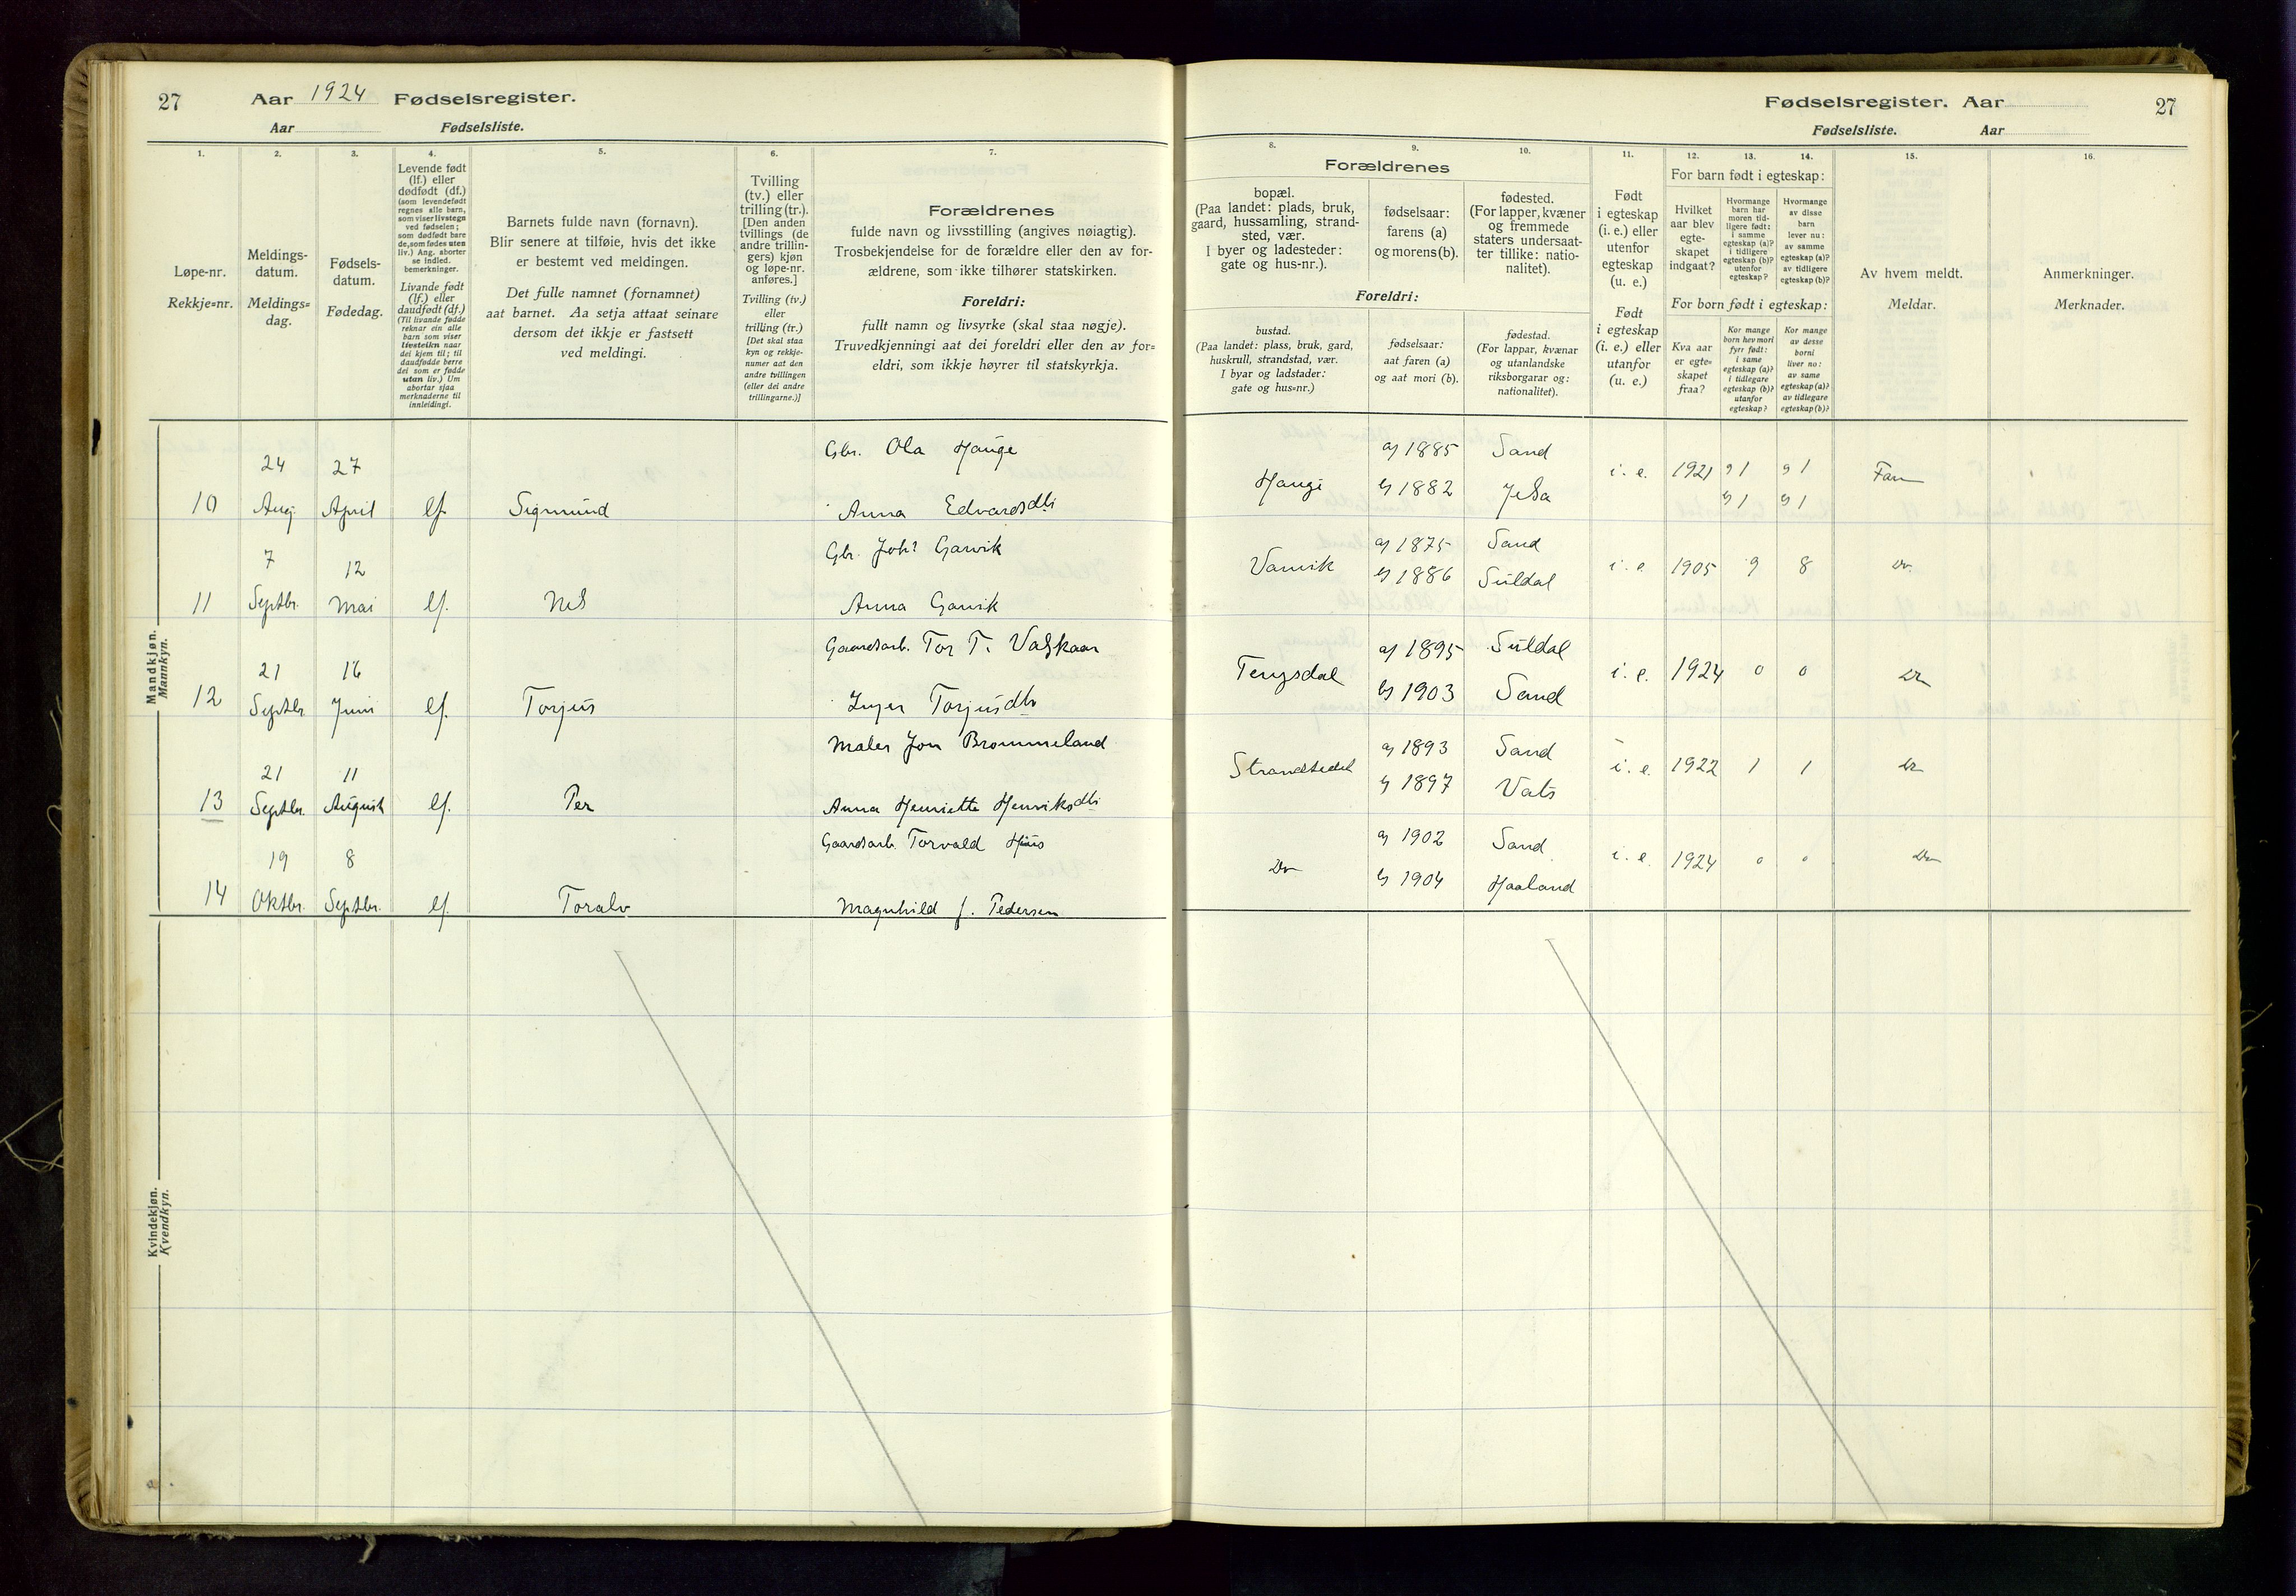 27 Aar 1924 Fødselsregister.
Aar Fødselsliste.
Fødselsregister. Aar 27
Fødselsliste. Aar
1. 2. 3. 4. 5. 6. 7.
Løpe-nr.
Rekkje=nr.
Meldings-
datum.
Meldings=
dag.
Fødsels-
datum.
Fødedag.
Levende født
(lf.) eller
dødfødt (df.)
(som levendefødt
regnes alle barn,
som viser livstegn
ved fødselen;
som dødfødt bare
de, som fødes uten
liv.) Ang. aborter
se indled.
bemerkninger.
Livande født
(lf.) eller
daudfødt (df.)
(Til livande fødde
reknar ein alle
barn som viser
livsteikn naar
dei kjem til; til
daudfødde berre
dei som er fødde
utan liv.) Um
abortar sjaa
merknaderne til
innleidingi.
Barnets fulde navn (fornavn).
Blir senere at tilføie, hvis det ikke
er bestemt ved meldingen.
Det fulle namnet (fornamnet)
aat barnet. Aa setja attaat seinare
dersom det ikkje er fastsett
ved meldingi.
Tvilling
(tv.) eller
trilling (tr.).
[Den anden
tvillings (de
andre trillin-
gers) kjøn
og løpe-nr.
anføres.]
Tvilling (tv.)
eller
trilling (tr.)
[Det skal staa
kyn og rekkje-
numer aat den
andre tvillingen
(eller dei andre
trillingarne.)]
Forældrenes
fulde navn og livsstilling (angives nøiagtig).
Trosbekjendelse for de forældre eller den av for-
ældrene, som ikke tilhører statskirken.
Foreldri:
fullt namn og livsyrke (skal staa nøgje).
Truvedkjenningi aat dei foreldri eller den av for=
eldri, som ikkje høyrer til statskyrkja.
8. 9. 10. 11. 12. 13. 14. 15. 16.
Forældrenes
bopæl.
(Paa landet: plads, bruk,
gaard, hussamling, strand-
sted, vær.
I byer og ladesteder:
gate og hus-nr.).
fødselsaar:
farens (a)
og morens (b).
fødested.
(For lapper, kvæner
og fremmede
staters undersaat-
ter tillike: natio-
nalitet).
Foreldri:
bustad.
(Paa landet: plass, bruk, gard,
huskrull, strandstad, vær.
I byar og ladstader:
gate og hus=nr.)
fødselsaar:
aat faren (a)
og aat mori (b).
fødestad.
(For lappar, kvænar
og utanlandske
riksborgarar og:
nationalitet).
Født
i egteskap
(i. e.) eller
utenfor
egteskap
(u. e.)
Født
i egteskap
(i. e.) eller
utanfor
(u. e.)
For barn født i egteskap:
Hvilket
aar blev
egte-
skapet
indgaat?
Hvormange
barn har
moren tid-
ligere født:
i samme
egteskap (a)?
i tidligere
egteskap (b)?
utenfor
egteskap?
Hvormange
av disse
barn
lever nu:
av samme
egteskap (a)?
av tidligere
egteskap (b)?
For born født i egteskap:
Kva aar
er egte=
skapet
fraa?
Kor mange
born hev mori
fyrr født:
i same
egteskap (a)?
i tidlegare
egteskap (b)?
utanfor
egteskap?
Kor mange
av desse
borni
liver no:
av same
egteskap (a)?
av tidlegare
egteskap (b)?
Av hvem meldt.
Meldar.
Anmerkninger.
Merknader.
Mandkjøn.
Mannkyn.
10 24 Aug. 27 April lf. Sigmund Gbr. Ola Hauge
Anna Edvardsdtr
Hauge a) 1885 Sand i. e. 1921 a) 1 a) 1 Far
b) 1882 Jelsa b) 1 b) 1
11 7 Septbr. 12 Mai lf. Nils Gbr. Joh? Garvik
Anna Garvik
Vanvik a) 1875 Sand i. e. 1905 9 8 Do.
b) 1886 Suldal
12 21 Septbr 16 Juni lf. Torjus Gaardsarb. Tor T. Valskaar
Inger Torjusdtr
Tengsdal a) 1895 Suldal i. e. 1924 0 0 Do
b) 1903 Sand
13 21 Septbr. 11 August lf. Per Maler Jon Brommeland
Anna Henriette Henriksdtr
Strandstedet a) 1893 Sand i. e. 1922 1 1 Do
b) 1897 Vats
14 19 Oktbr. 8 Septbr. lf. Toralv Gaardsarb. Torvald
Magnhild f. Pedersen
Do a) 1902 Sand i. e. 1924 0 0 Do
b) 1904 Haaland
Kvindekjøn.
Kvendkyn.